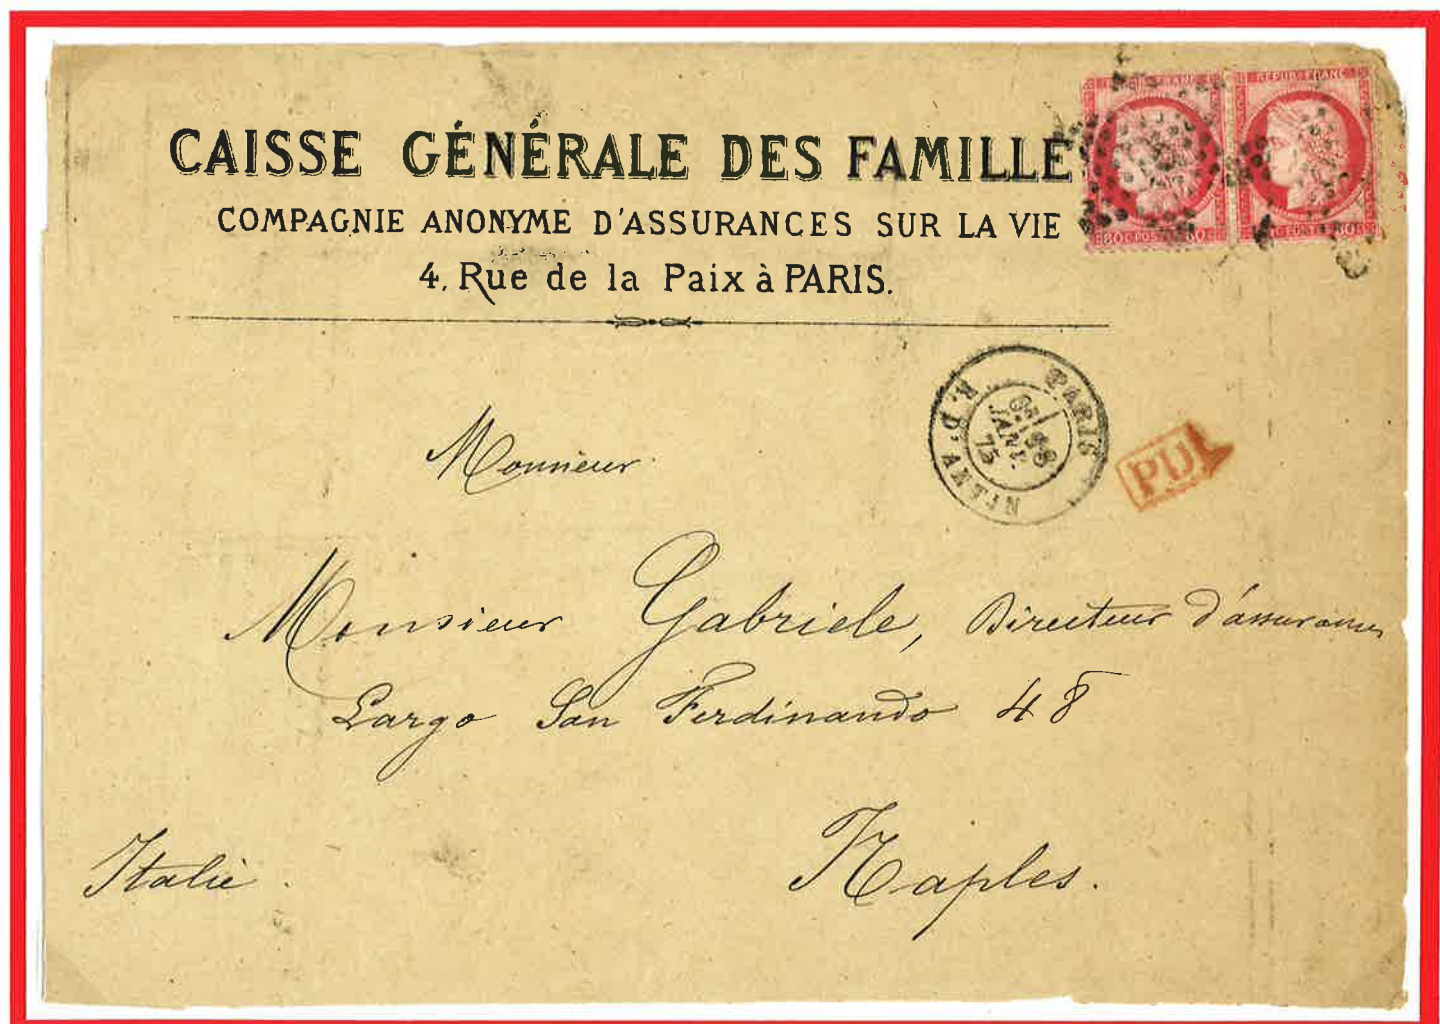 CAISSE GÉNÉRALE DES FAMILLE
COMPAGNIE ANONYME D'ASSURANCES SUR LA VIE
4, Rue de la Paix à PARIS.
REPUB. FRANC
80 C POSTES 80
PARIS
R. D'ANTIN
JANV.
75
Monsieur
Monsieur Gabriele, Directeur d'assurances
Largo San Ferdinando 48
Naples.
Italie.